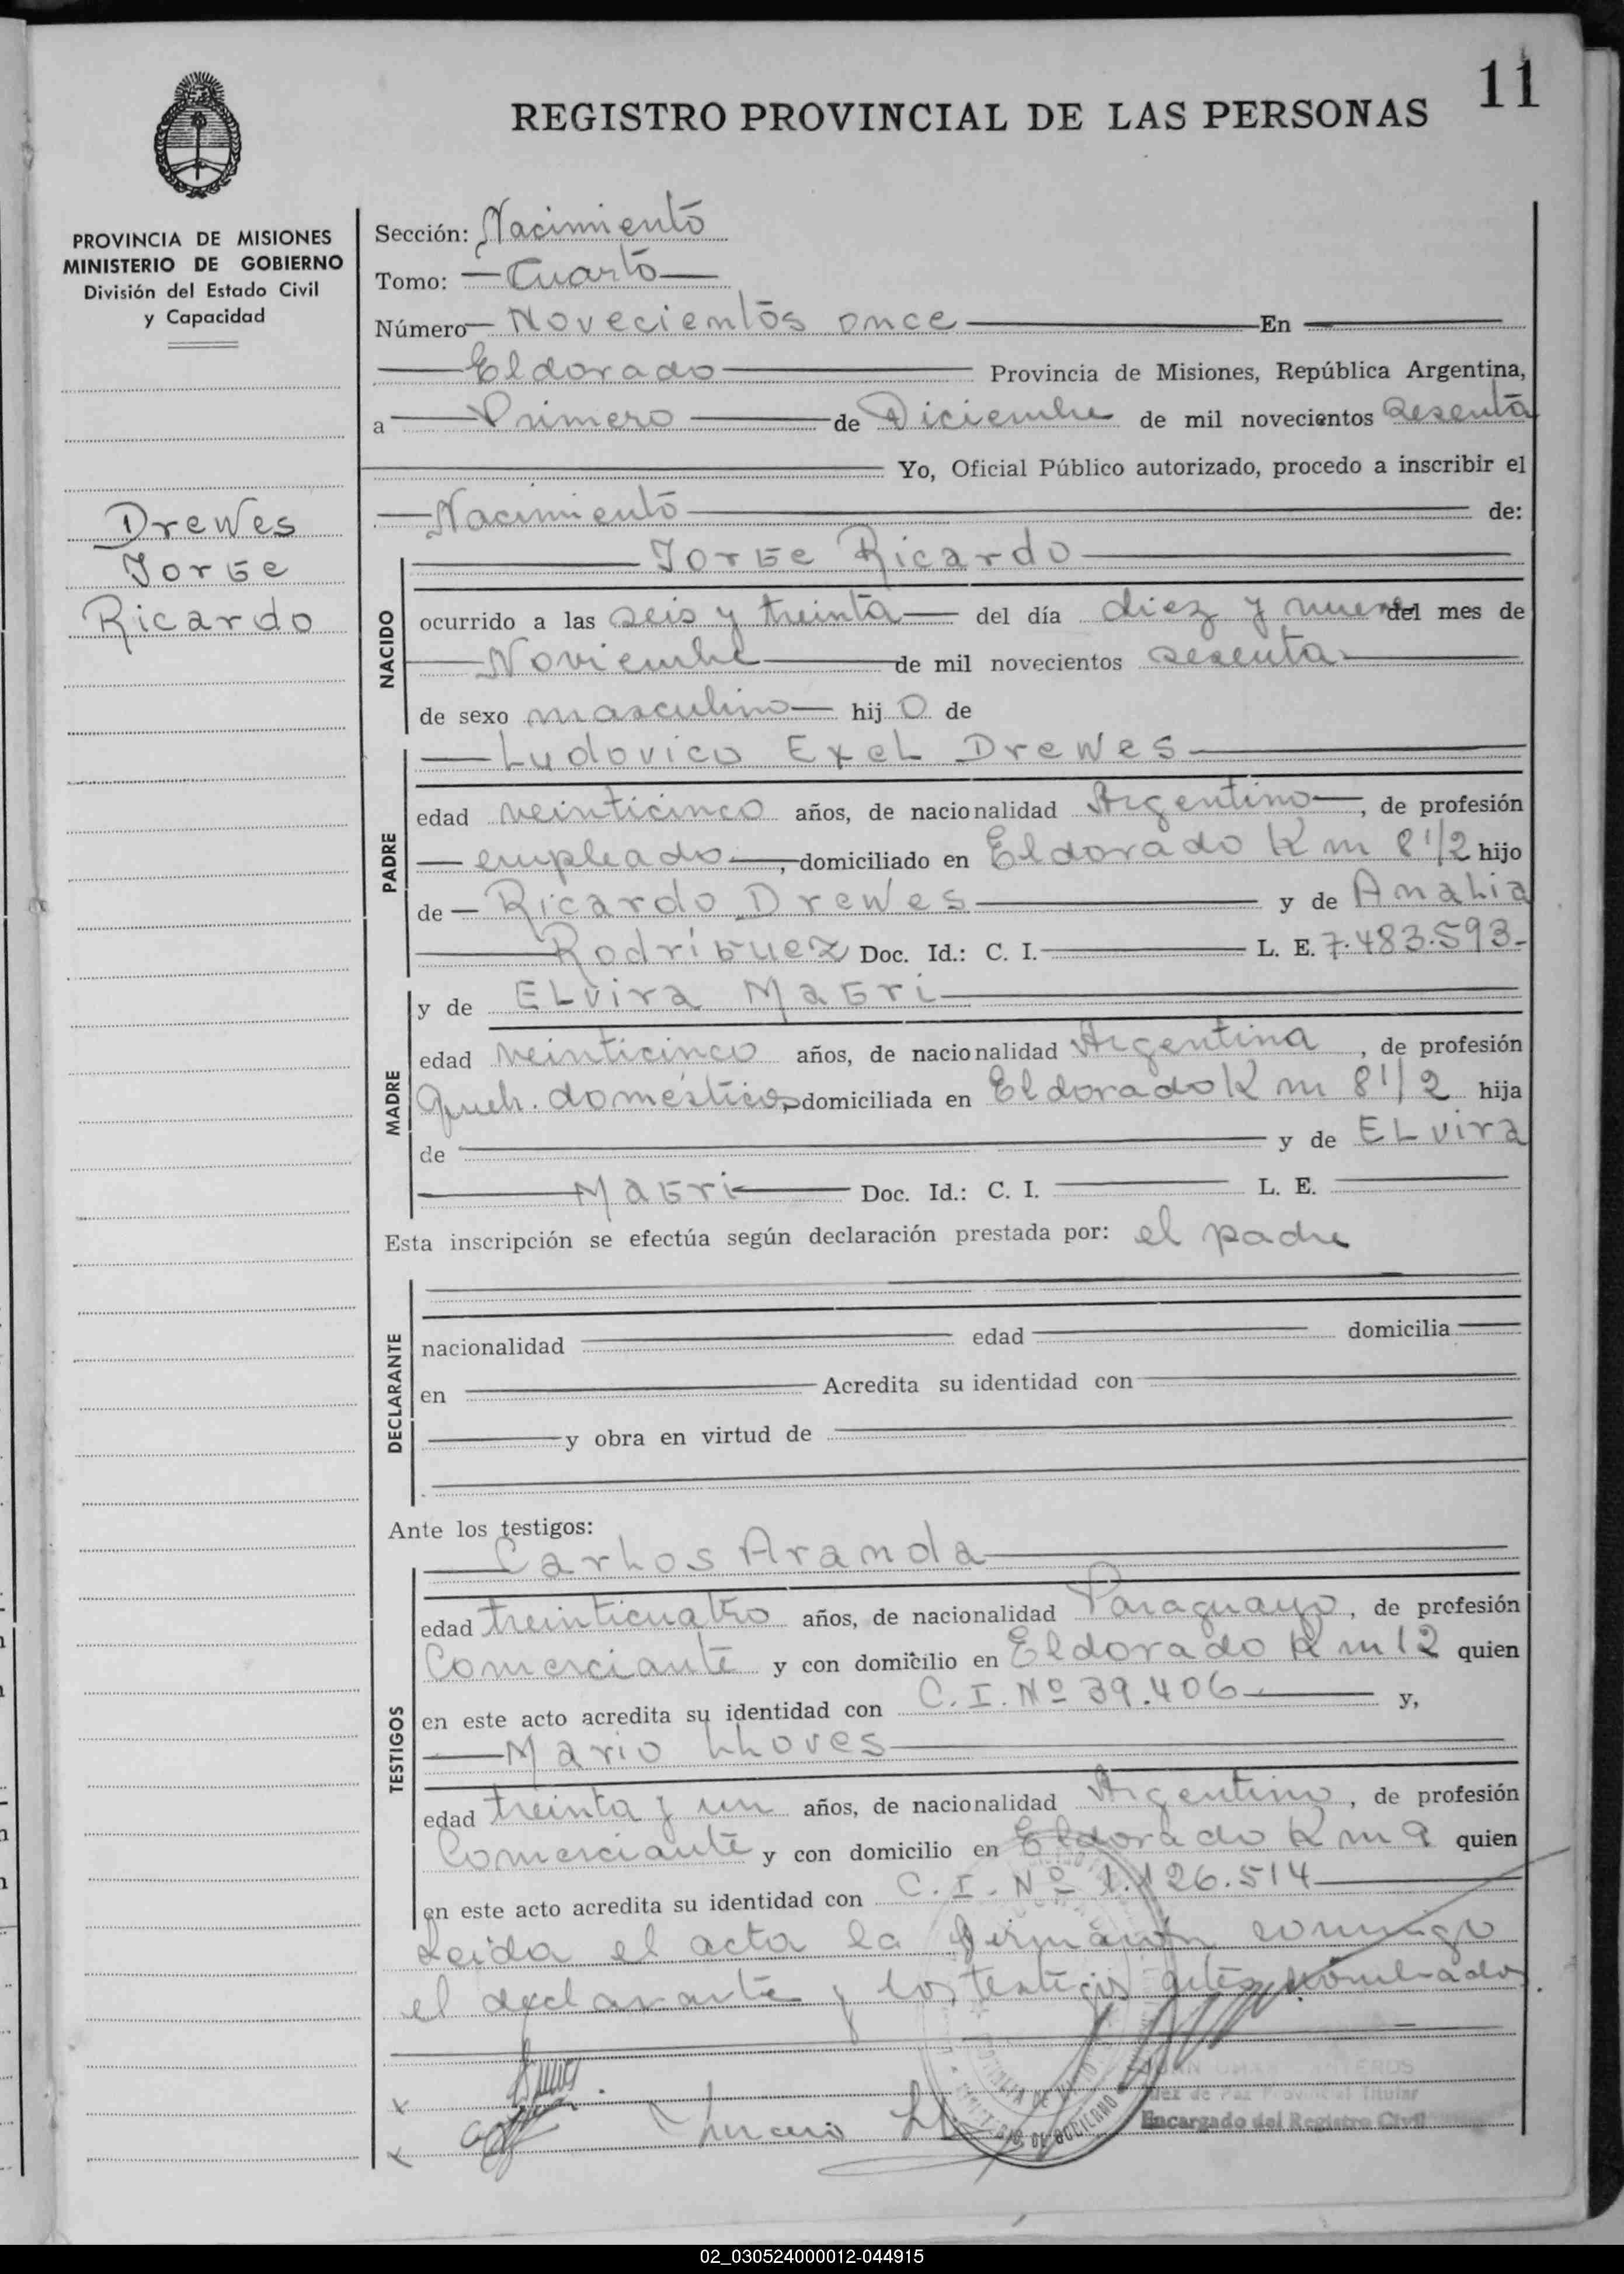 11
REGISTRO PROVINCIAL DE LAS PERSONAS
PROVINCIA DE MISIONES
MINISTERIO DE GOBIERNO
División del Estado Civil
y Capacidad
Drewes
Jorge
Ricardo
Sección: Nacimiento
Tomo: Cuarto
Número Novecientos once En
Eldorado Provincia de Misiones, República Argentina,
a Primero de Diciembre de mil novecientos sesenta
Yo, Oficial Público autorizado, procedo a inscribir el
Nacimiento de:
NACIDO
Jorge Ricardo
ocurrido a las seis y treinta del día diez y nueve del mes de
Noviembre de mil novecientos sesenta
de sexo masculino hijo de
PADRE
Ludovico Exel Drewes
edad veinticinco años, de nacionalidad Argentino, de profesión
empleado, domiciliado en Eldorado Km 8 1/2 hijo
de Ricardo Drewes y de Amalia
Rodríguez Doc. Id.: C. I. L. E. 7.483.593-
MADRE
y de Elvira Magri
edad veinticinco años, de nacionalidad Argentina, de profesión
queh. domésticos, domiciliada en Eldorado Km 8 1/2 hija
de y de Elvira
Magri Doc. Id.: C. I. L. E.
Esta inscripción se efectúa según declaración prestada por: el padre
DECLARANTE
nacionalidad edad domicilia
en Acredita su identidad con
y obra en virtud de
Ante los testigos:
TESTIGOS
Carlos Aranda
edad treinticuatro años, de nacionalidad Paraguayo, de profesión
Comerciante y con domicilio en Eldorado Km 12 quien
en este acto acredita su identidad con C. I. Nº 39.406 y,
Mario Lloves
edad treinta y un años, de nacionalidad Argentino, de profesión
Comerciante y con domicilio en Eldorado Km 9 quien
en este acto acredita su identidad con C. I. Nº 1.126.514
Leida el acta la firmaron conmigo
el declarante y los testigos antes nombrados.
Juez de Paz Provincial Titular
Encargado del Registro Civil
02_030524000012-044915